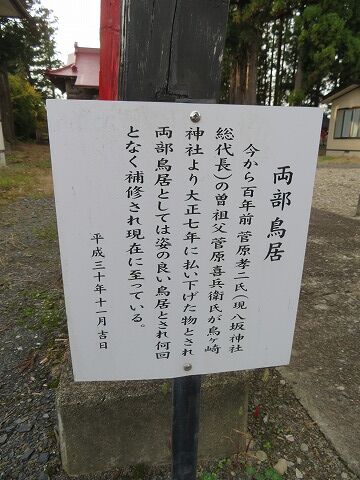 両部鳥居
今から百年前 菅原孝二氏(現八坂神社
総代長)の曽祖父菅原喜兵衛氏が烏ヶ崎
神社より大正七年に払い下げた物とされ
両部鳥居としては姿の良い鳥居とされ何回
となく補修され現在に至っている。
平成三十年十一月吉日